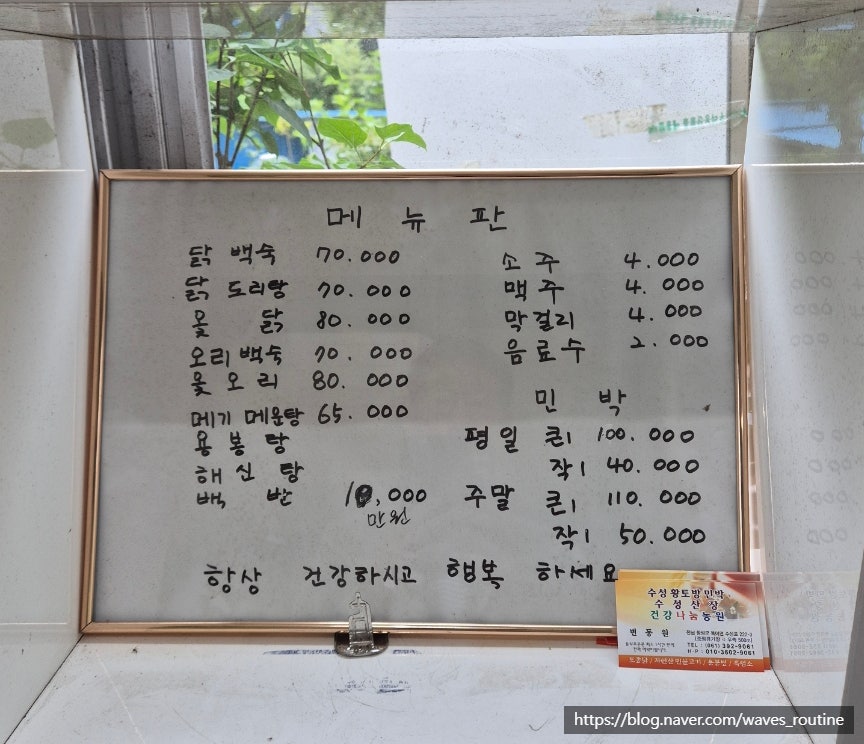 메 뉴 판
닭 백숙 70.000
닭 도리탕 70.000
옻 닭 80.000
오리백숙 70.000
옻 오리 80.000
메기 메운탕 65.000
용 봉 탕
해 신 탕
백 반 10,000
만원
소 주 4.000
맥 주 4.000
막걸리 4.000
음료수 2.000
민 박
평일 큰 100.000
작 40.000
주말 큰 110.000
작 50.000
항상 건강하시고 행복 하세요
수성황토방민박
수 성 산 장
건강나눔농원
변 풍 원
TEL : (061) 392-9061
H·P : 010-3602-9061
https://blog.naver.com/waves_routine